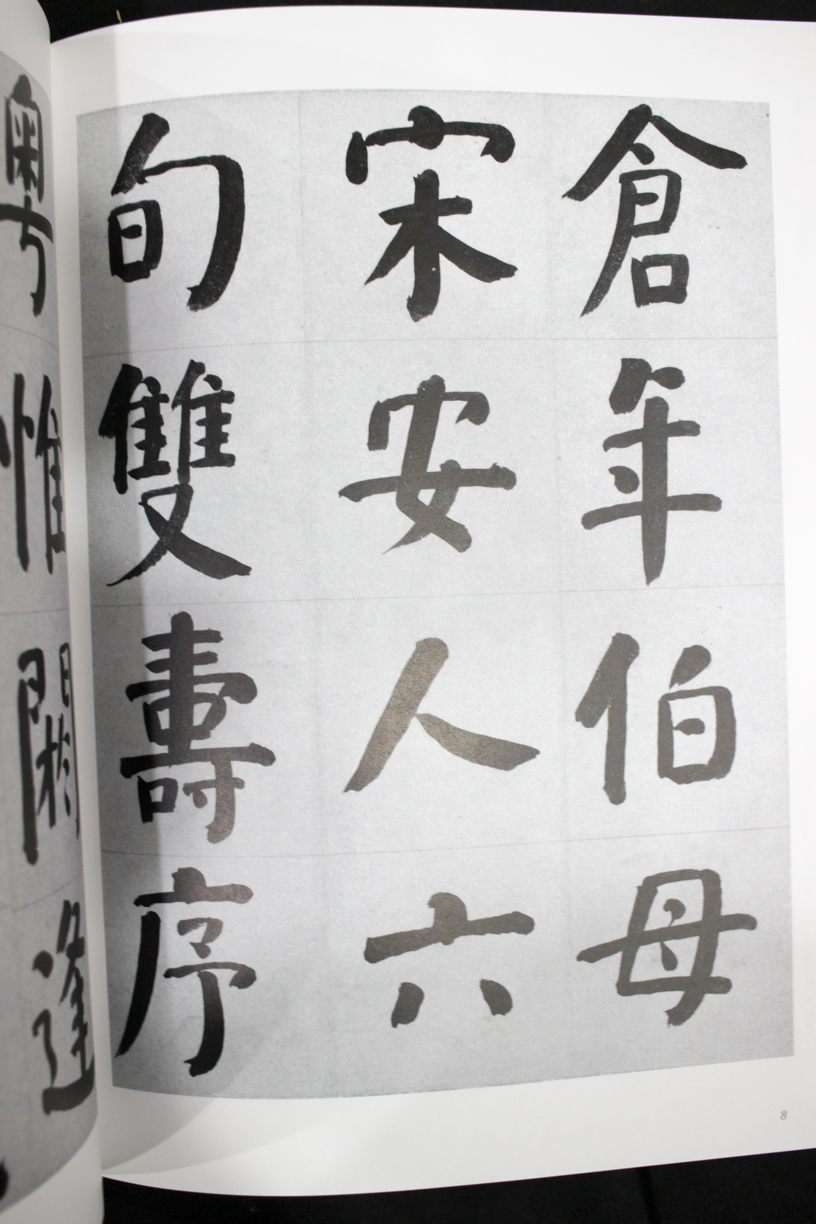 倉年伯母
宋安人六
旬雙壽序
粵惟閼逢
8